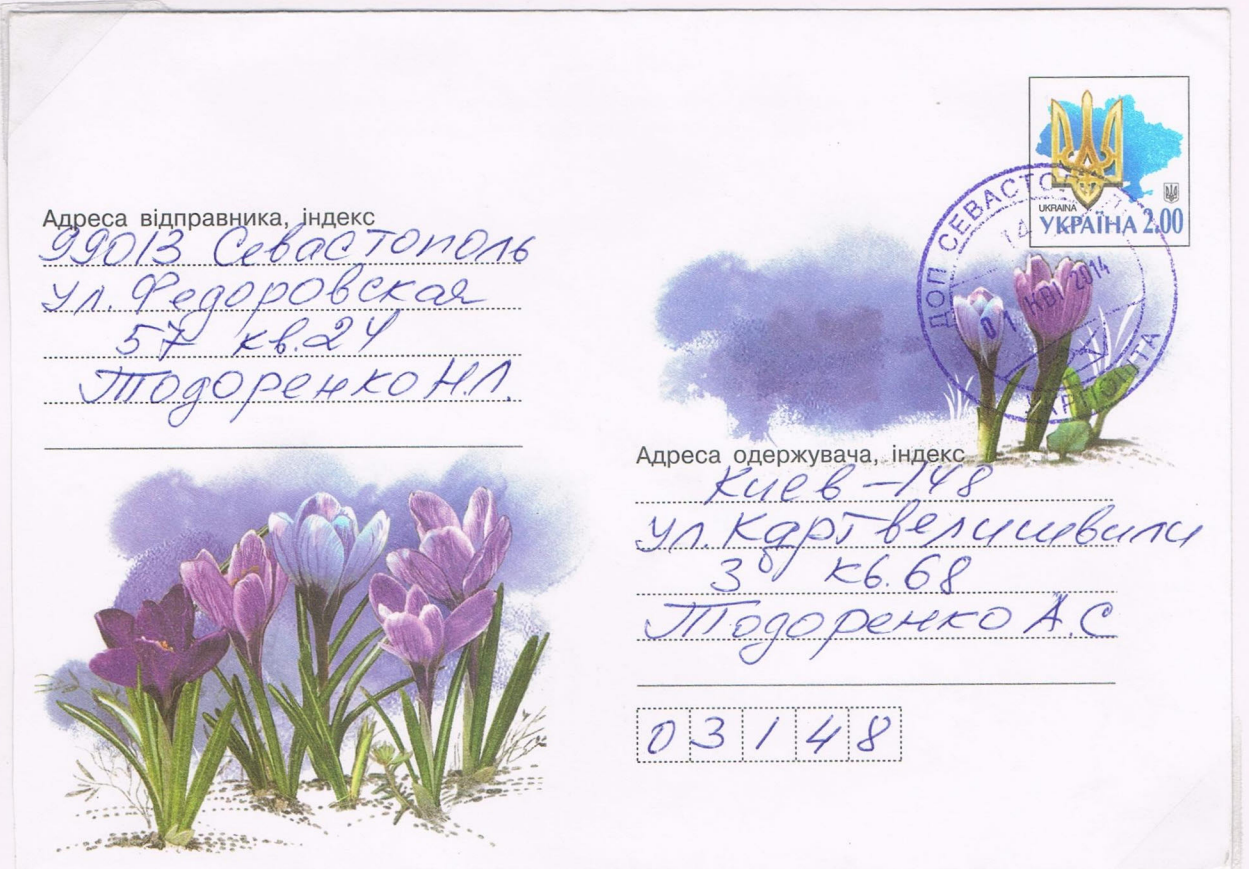 Адреса відправника, індекс
99013 Севастополь
ул. Федоровская
57 кв. 24
Тодоренко Н.Л.
UKRAINA
УКРАЇНА 2.00
ДОП СЕВАСТО
14
01 2014
УКРПОШТА
Адреса одержувача, індекс
Киев - 148
ул. Картвелишвили
3 кв. 68
Тодоренко А.С
03148